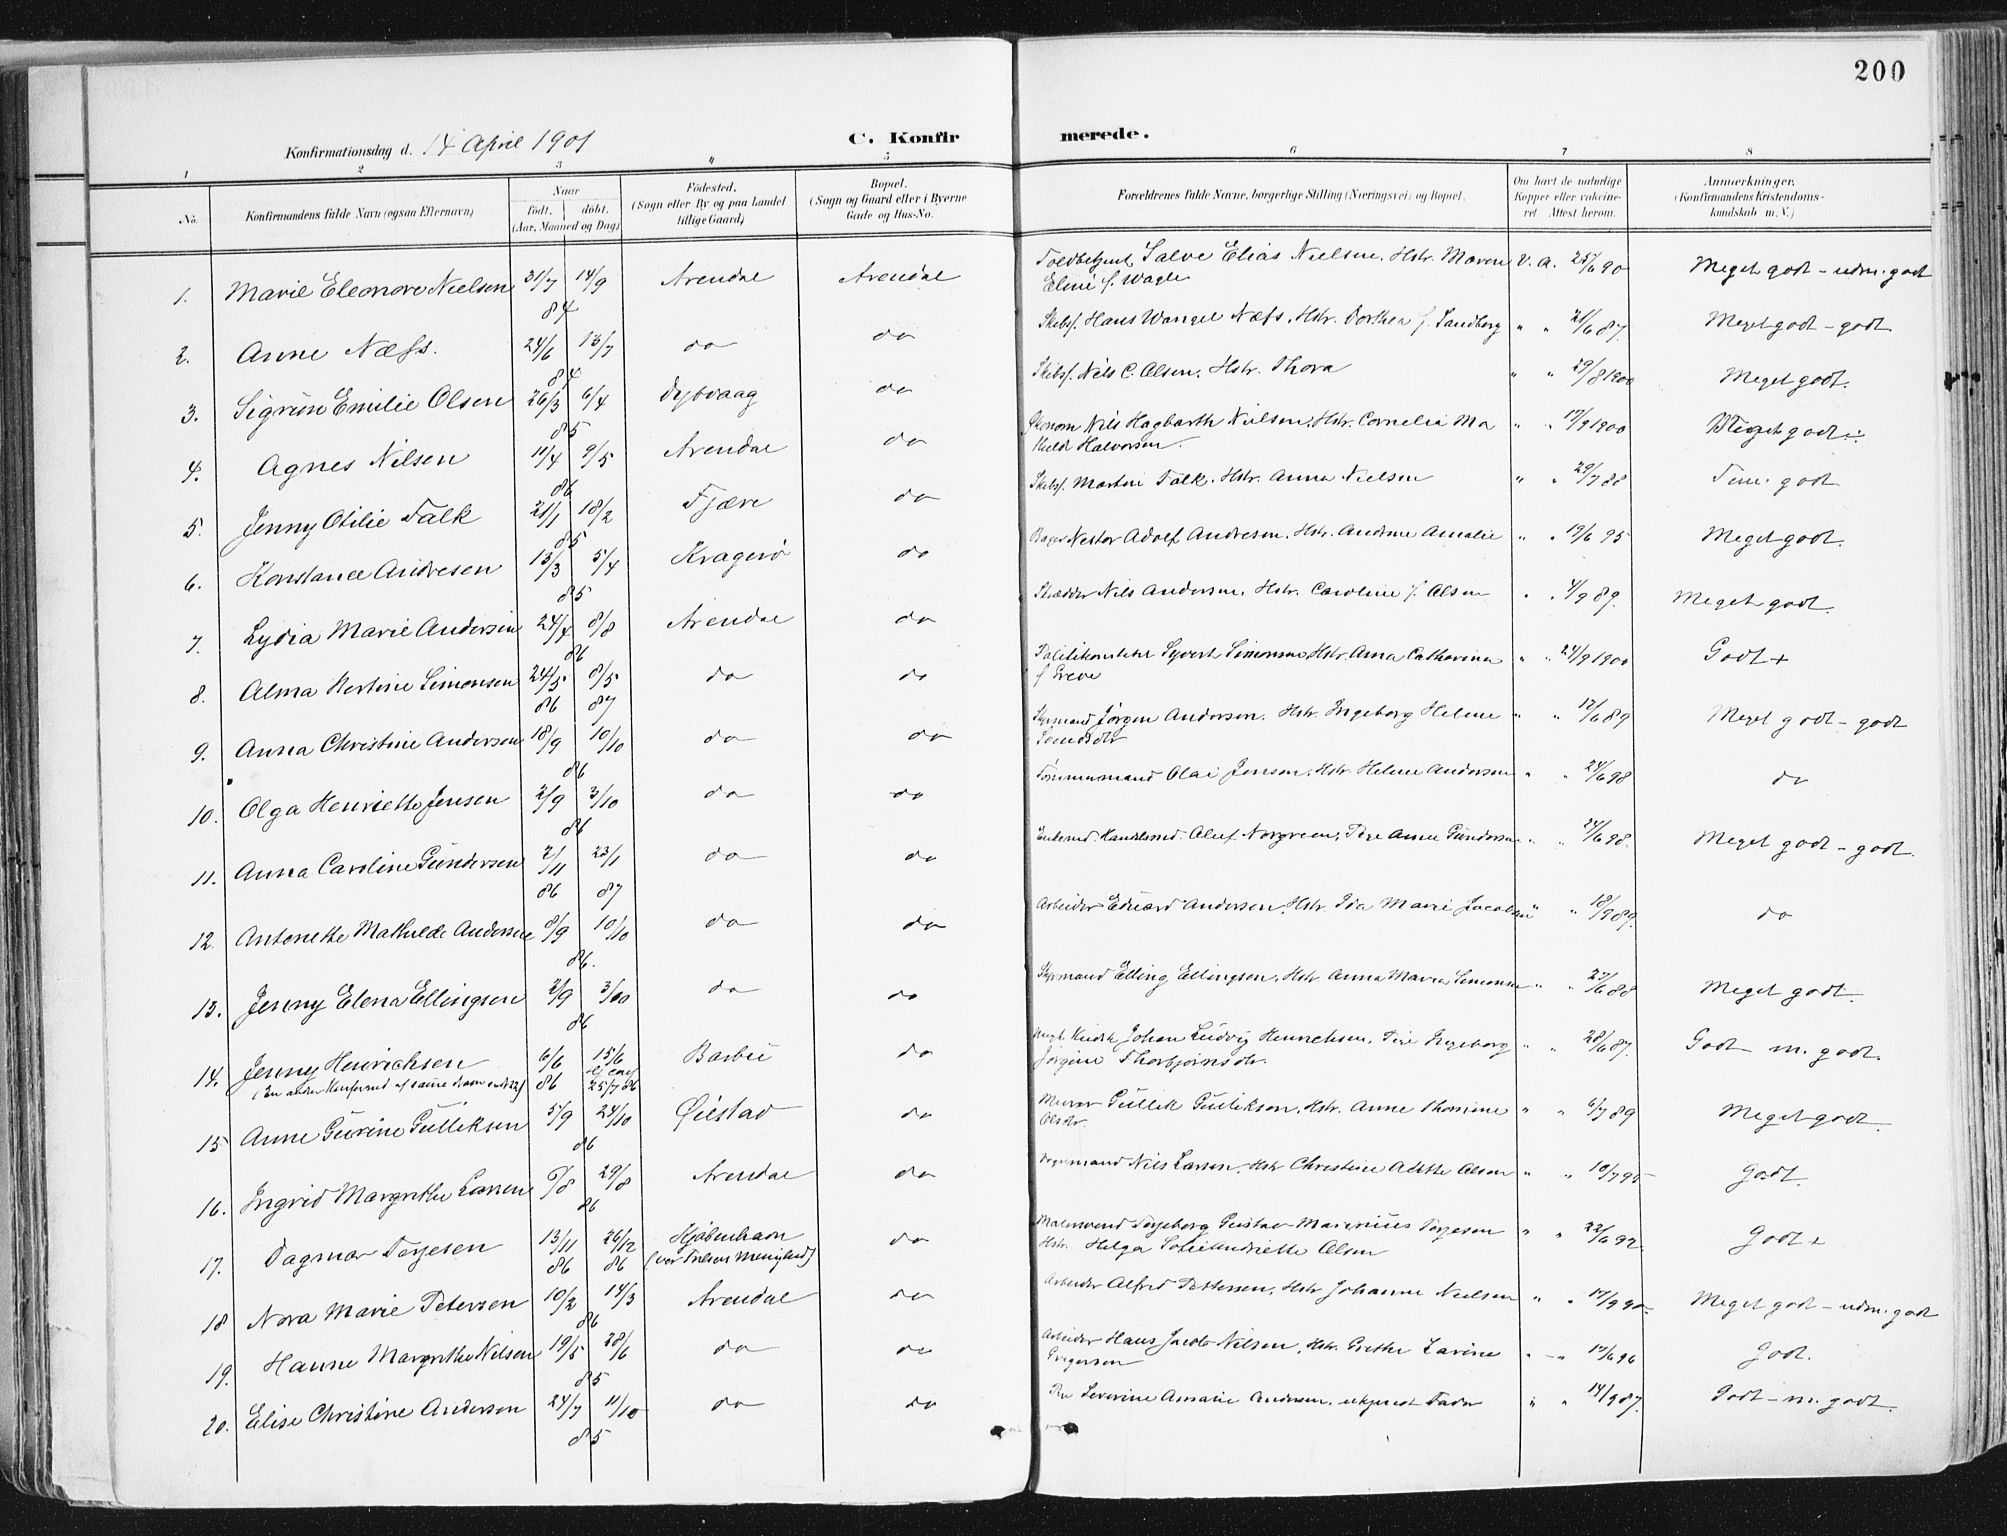 200
Konfirmationsdag d. 14 April 1901
C. Konfirmerede.
1 2 3 4 5 6 7 8
No.
Konfirmandens fulde Navn (ogsaa Efternavn)
Naar
født. døbt.
(Aar, Maaned og Dag)
Fødested.
(Sogn eller By og paa Landet
tillige Gaard)
Bopæl.
(Sogn og Gaard eller i Byerne
Gade og Hus-No.
Forældrenes fulde Navne, borgerlige Stilling (Næringsvei) og Bopæl.
Om havt de naturlige
Kopper eller vakcine-
ret Attest herom.
Anmærkninger.
(Konfirmandens Kristendoms-
kundskab m. V.)
1. Marie Eleonore Nielsen 31/7 14/9 84 Arendal Arendal Salve Elias Nielsen. Hstr. Maren V. A. 25/6 90 Meget godt - udm. godt
Eline f. Wagle
2. Anne Næss. 24/6 13/7 84 do do Skibsf. Hans Wangel Næss. Hstr. Dorthea f. Sandberg " " 21/6 87. Meget godt - godt
3. Sigrun Emilie Olsen 26/3 6/4 85 Dybvaag do Skibsf. Nils C. Olsen. Hstr. Thora " " 29/8 1900 Meget godt.
4. Agnes Nilsen 11/4 9/5 86 Arendal do Økonom Nils Hagbarth Nielsen, Hstr. Cornelia Ma " " 17/9 1900 Meget godt ÷
thilde Halvorsen
5. Jenny Otilie Falk 21/1 18/2 85 Fjære do Skibsf. Martin Falk. Hstr. Anna Nielsen " " 29/7 88 Tem. godt
6. Konstance Andresen 13/3 5/4 85 Kragerø do Bager Nestor Adolf Andresen, Hstr. Andrine Amalie " " 19/6 95 Meget godt.
7. Lydia Marie Andersen 24/4 8/8 86 Arendal do Skrædder Nils Andersen, Hstr. Caroline f. Olsen " " 4/9 89. Meget godt.
8. Alma Hertine Simonsen 24/5 86 8/5 87 do do Politikonstabel Syvert Simonsen Hstr. Anna Catharina " " 24/9 1900 Godt +
f Greve
9. Anna Christine Andersen 18/9 10/10 86 do do Styrmand Jørgen Andersen. Hstr. Ingeborg Helene " " 17/6 89 Meget godt - godt
10. Olga Henriette Jensen 2/9 3/10 86 do do Tømmermand Olai Jensen, Hstr. Helene Andersen " " 24/6 98 do
11. Anna Caroline Gundersen 2/11 86 23/1 87 do do Aluf Norgreen, Pige Anne Gundersen " " 24/6 98. Meget godt - godt.
12. Antonette Mathilde Andersen 8/9 10/10 86. do do Arbeider Eduard Andersen, Hstr. Ida Marie Jacobsen " " 18/9 89. do
13. Jenny Elena Ellingsen 2/9 3/10 86 do do Styrmand Elling Ellingsen, Hstr. Anna Maria Simonsen " " 27/6 88 Meget godt.
14. Jenny Henrichsen 6/6 86 15/6 25/7 86 Barbu do Johan Ludvig Henrichsen, Pige Ingeborg " " 28/6 87. Godt m. godt.
Jørgine Thorbjørnsdtr.
15 Anne Gurine Gulliksen 5/9 24/10 86 Øiestad do Murer Gullik Gulliksen, Hstr. Anne Thomine " " 6/7 89 Meget godt.
Olsdtr.
16. Ingrid Margrethe Larsen 6/8 29/8 86 Arendal do Nils Larsen, Hstr Christine Adethe Olsen " " 10/7 95 Godt.
17. Dagmar Terjesen 13/11 86 26/12 86 Kjøbenhavn do Gustav Marinius Terjesen " " 22/6 92. Godt +
(vor Frelsers Menighed)
Hstr. Helga Sofie Andriette Olsen
18 Nora Marie Petersen 10/2 14/3 86 Arendal do Arbeider Alfred Pettersen, Hstr Johanne Nielsen " " 17/9 90. Meget godt - udm. godt
19. Hanne Margrethe Nilsen 19/5 28/6 85 do do Arbeider Hans Jacob Nilsen, Hstr. Grethe Zarine " - " 17/6 96 Godt.
Gregersen
20. Elise Christine Andersen 24/7 11/10 85 do do Pige Severine Amalie Andersen, ukjendt Fader " " 14/9 87. Godt - m. godt.